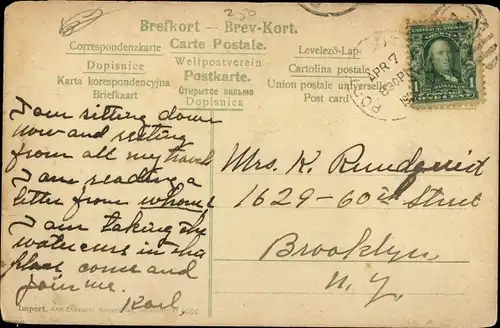 250
Brefkort — Brev-Kort.
Correspondenzkarte Carte Postale. Levelező-Lap
Dopisnice Weltpostverein Cartolina postale
Karta korespondencyjna Postkarte. Union postale universelle
Briefkaart Открытое письмо Post card
Dopisnica
APR 7
8 30 P
1
I am sitting down
now and resting
from all my travel
I am reading a
letter from whom?
I am taking the
water cure in this
place come and
join me.
Karl
Mrs. K. Rundquist
1629-60th Street
Brooklyn
N. Y.
Import.